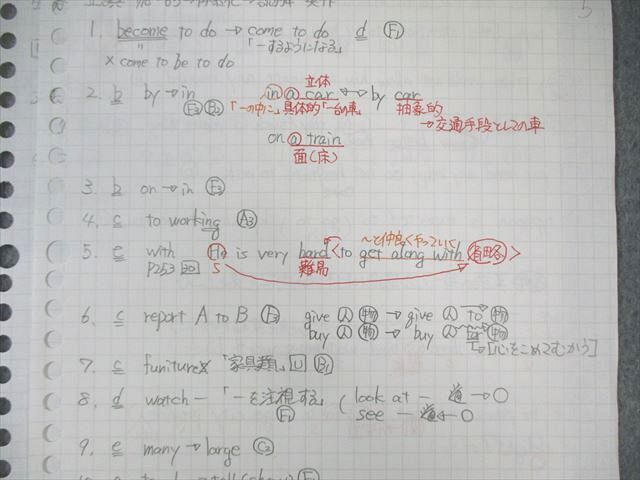 5
1. become to do → come to do d F1
" 「〜するようになる」
× come to be to do
立体
2. b by→in in a car ↔ by car
「〜の中に」 具体的「一台の車」 抽象的
→交通手段としての車
on a train
面(床)
3. b on→in
4. c to working A3
〜と仲良くやっていく
5. e with He is very hard <to get along with >
P253 20 S 難易
6. c report A to B give 人 物 → give 人 to 物
buy 人 物 → buy 人 物
[心をこめてむかう]
7. c funiture× 「家具類」 U B1
8. d watch ― 「〜を注視する」 ( look at ― 道→○
F1 see ― 道←○
9. e many→large C2